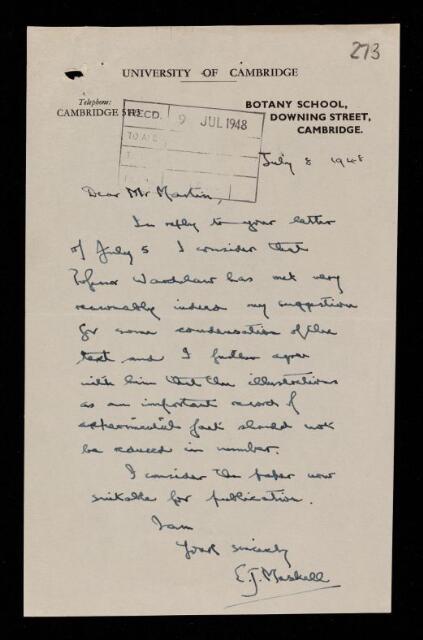 273
UNIVERSITY OF CAMBRIDGE
Telephone:
CAMBRIDGE
BOTANY SCHOOL,
DOWNING STREET,
CAMBRIDGE.
RECD. 9 JUL 1948
July 8 1948
Dear Mr Martin,
In reply to your letter
of July 5 I consider that
Professor Wardlaw has met very
reasonably indeed my suggestion
for some condensation of the
text and I further agree
with him that the illustrations
as an important record of
experimental fact should not
be reduced in number.
I consider the paper now
suitable for publication.
I am
Yours sincerely
E. J. Maskell